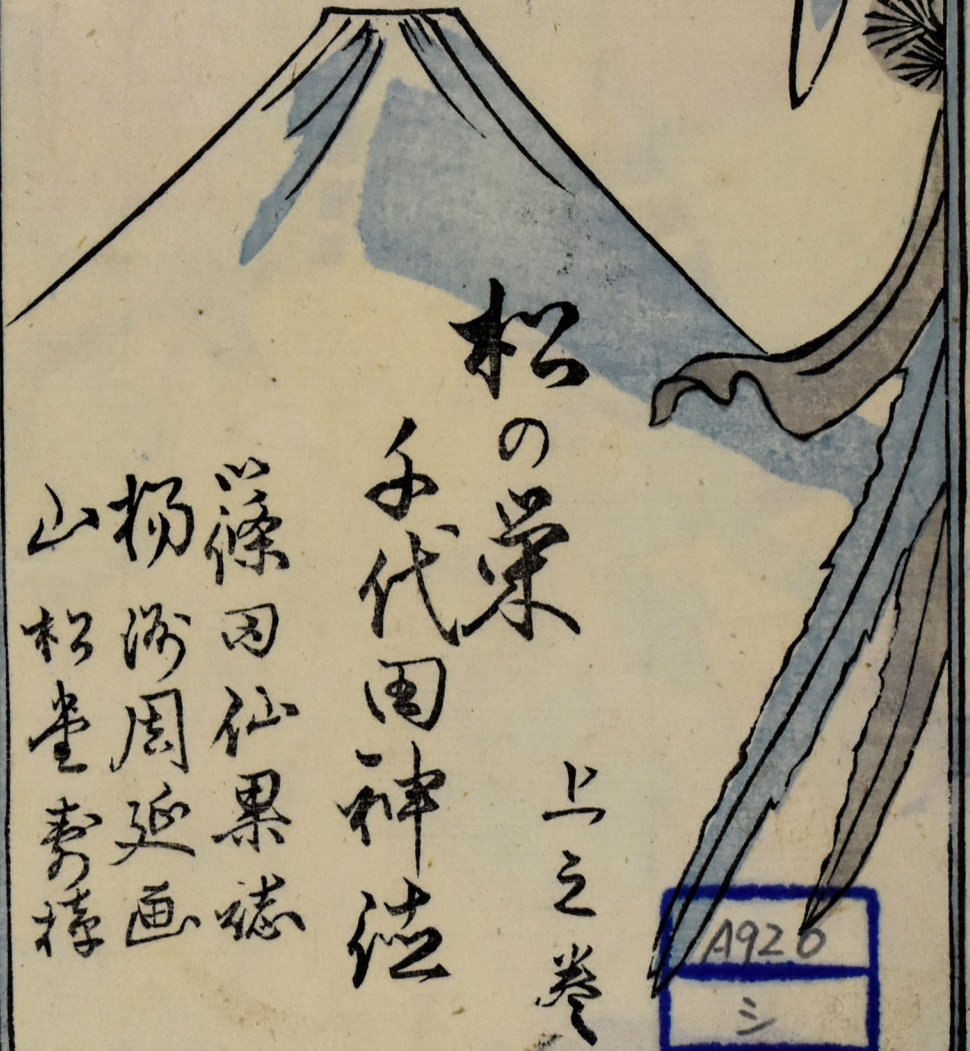 松の栄
千代田神徳
上之巻
篠田仙果誌
楊洲周延画
山松堂寿梓
A920
シ